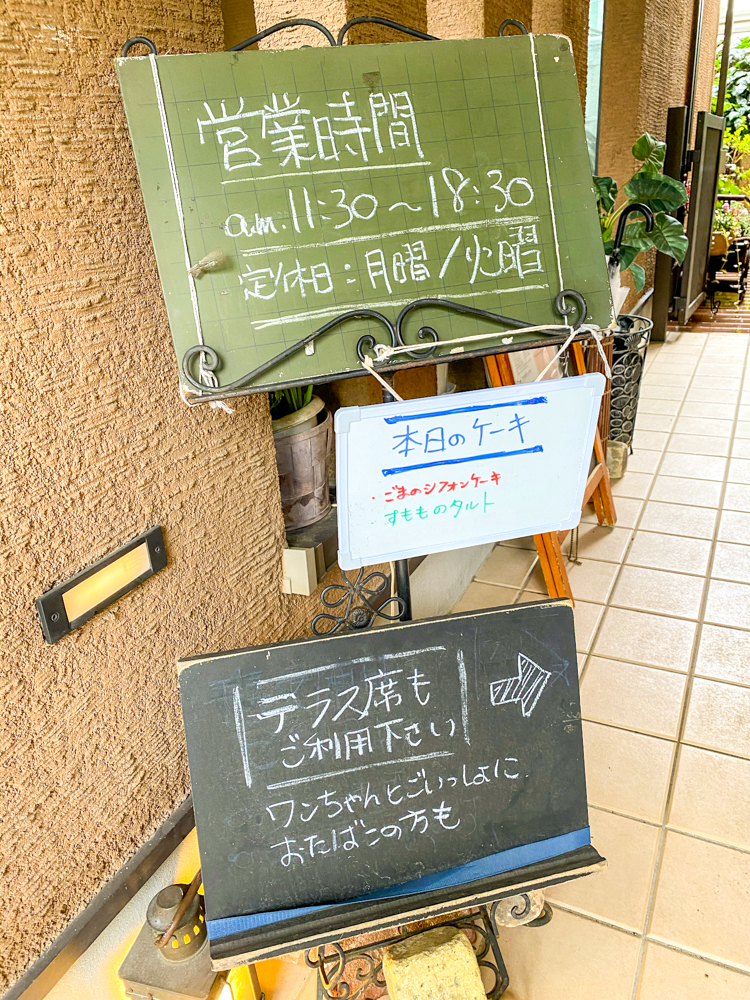 営業時間
a.m. 11:30～18:30
定休日：月曜/火曜
本日のケーキ
・ごまのシフォンケーキ
・すもものタルト
テラス席も
ご利用下さい
ワンちゃんとごいっしょに
おたばこの方も